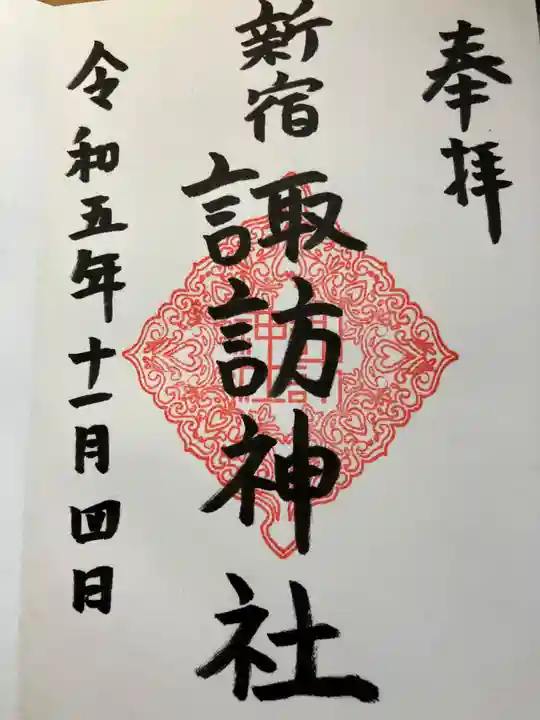 奉拝
新宿
諏訪神社
令和五年十一月四日